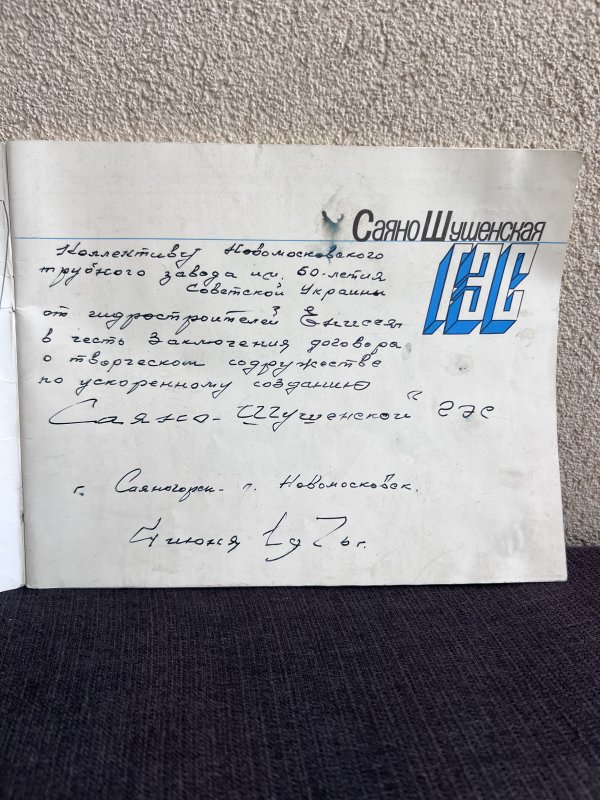 СаяноШушенская
ГЭС
Коллективу Новомосковского
трубного завода им. 60-летия
Советской Украины
от гидростроителей Енисея
в честь Заключения договора
о творческом содружестве
по ускоренному созданию
Саяно-Шушенской ГЭС
г. Саяногорск - г. Новомосковск.
4 июня 1976г.